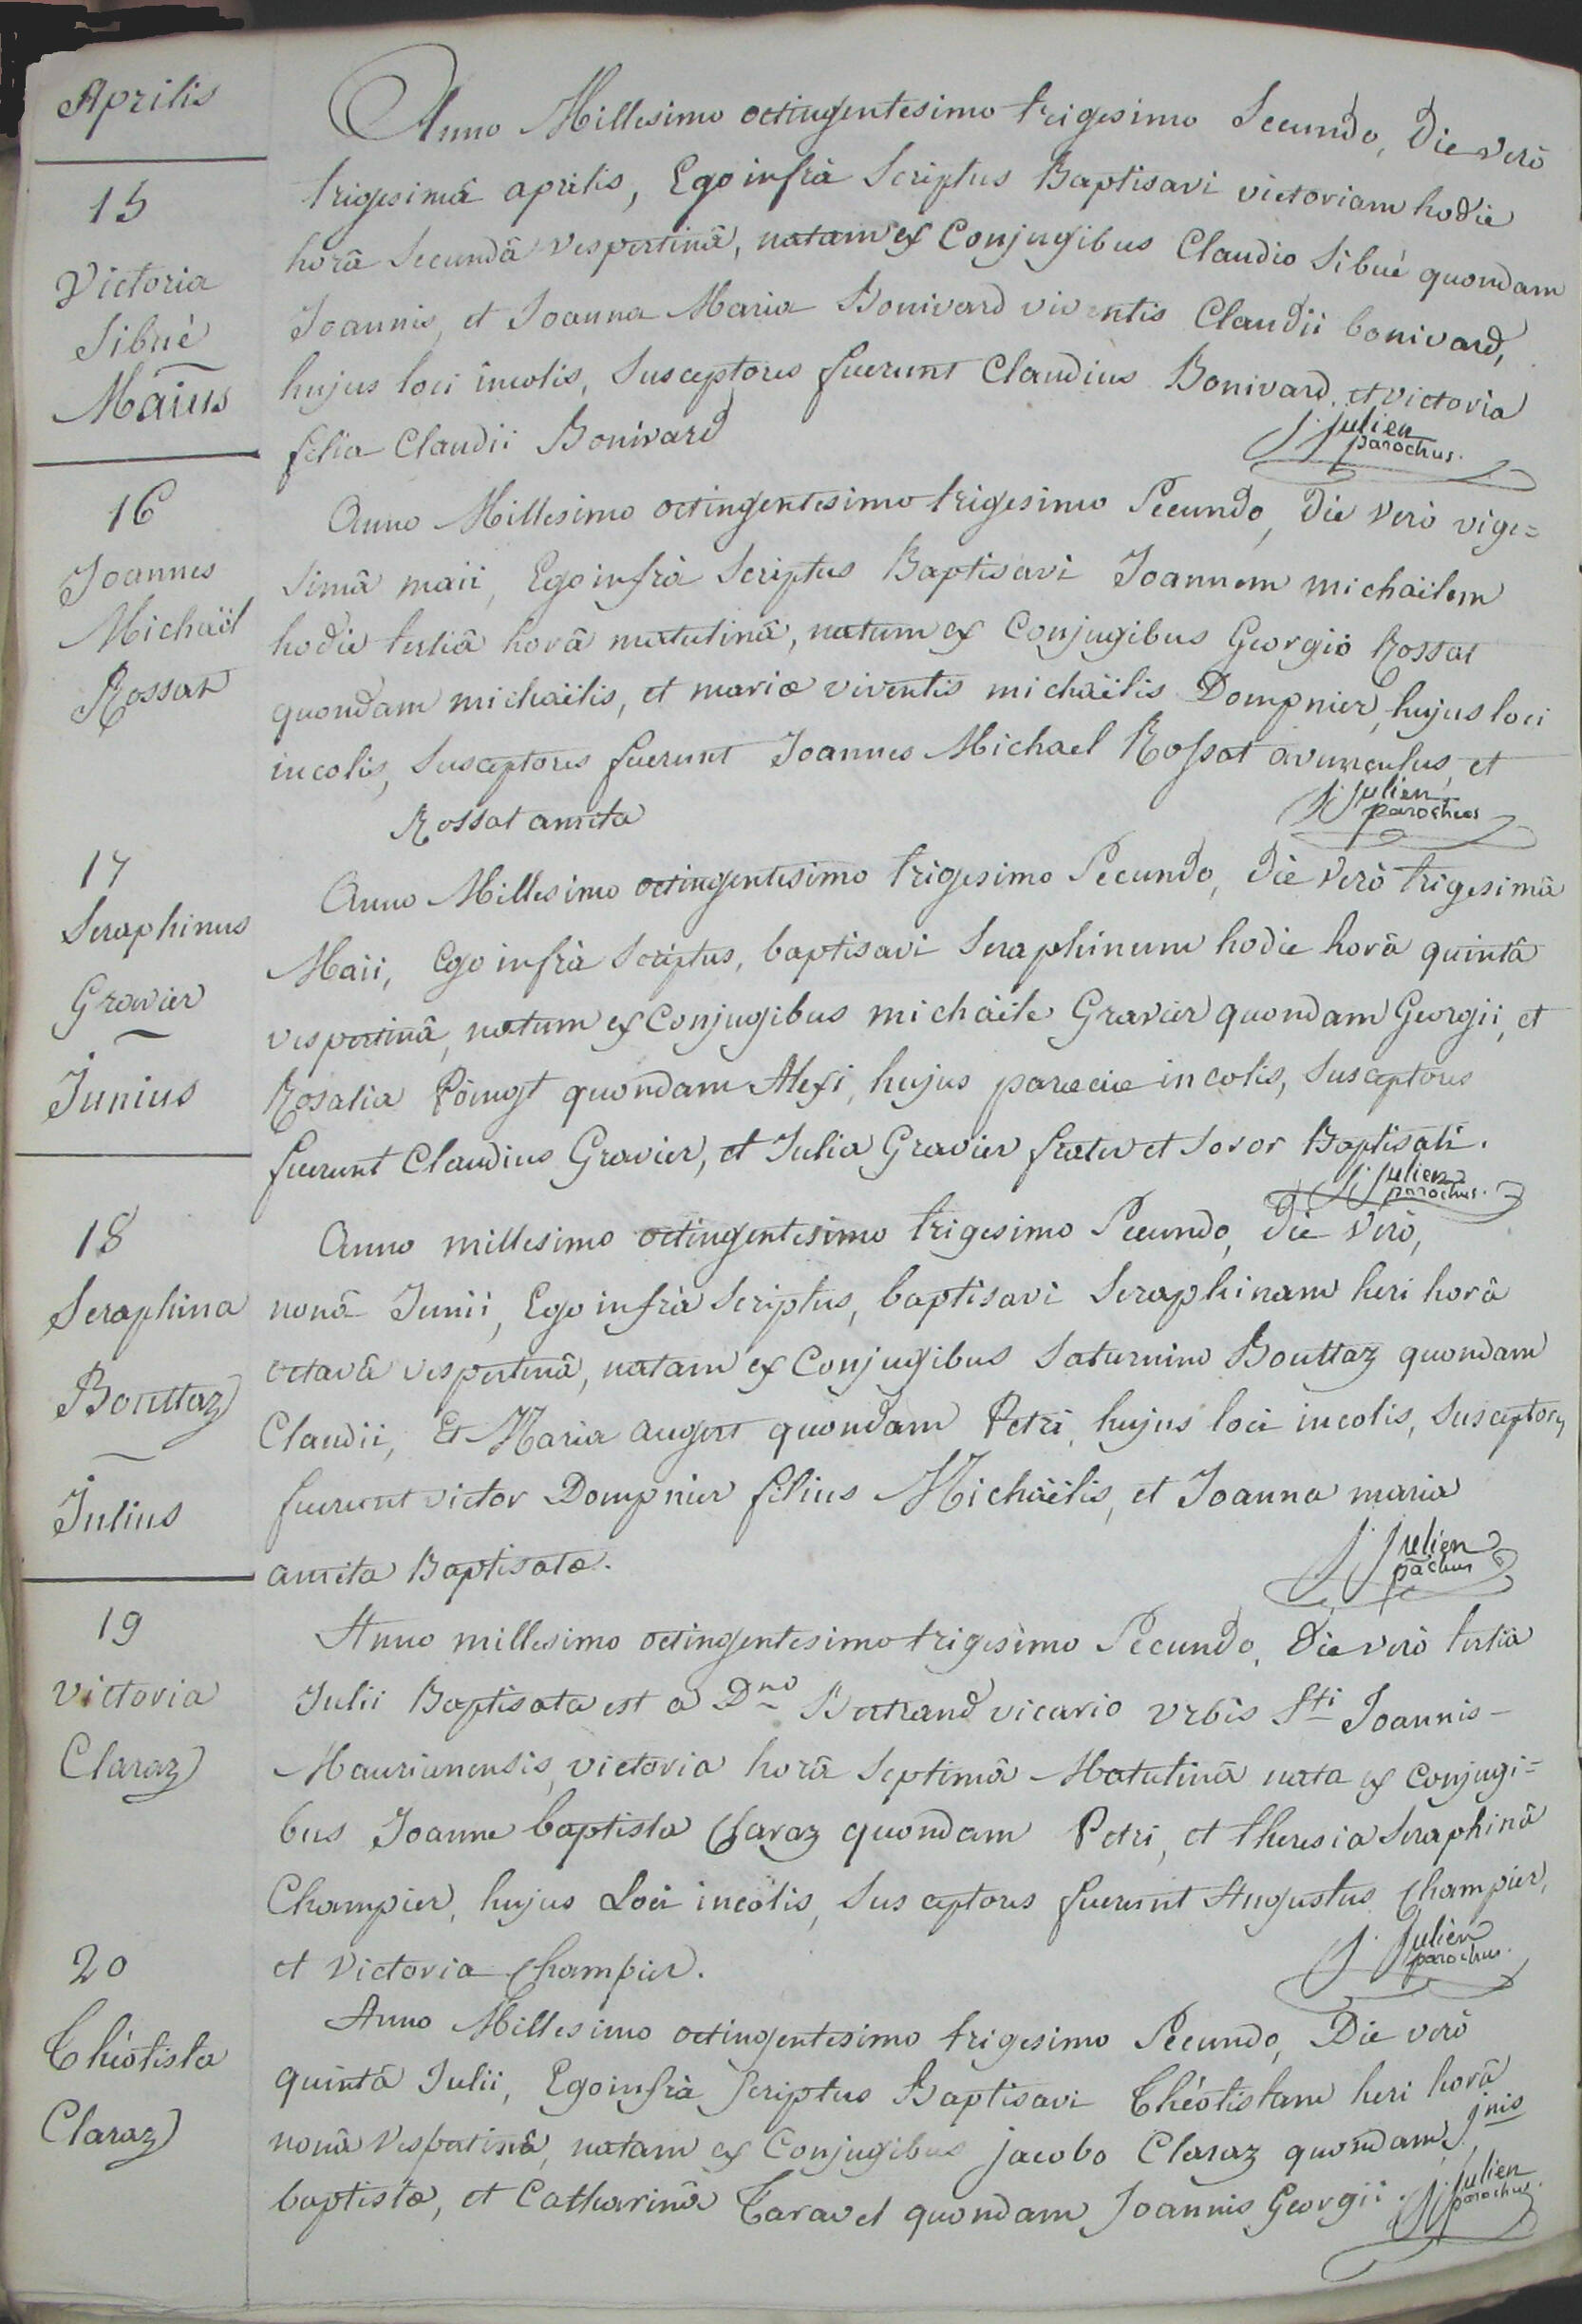 Aprilis
15
Victoria
Sibué
Anno Millesimo octingentesimo trigesimo Secundo, Die verò
trigesimâ aprilis, Ego infrà Scriptus Baptisavi victoriam hodie
horâ Secundâ vespertinâ, natam ex Conjugibus Claudio Sibué quondam
Joannis, et Joanna Maria Bonivard viventis Claudii bonivard,
hujus loci incolis, Susceptores fuerunt Claudius Bonivard, et victoria
filia Claudii Bonivard
J. Julien
parochus.
Maius
16
Joannes
Michaël
Rossat
Anno Millesimo octingentesimo trigesimo Secundo, Die verò vige=
simâ maii, Ego infrà Scriptus Baptisavi Joannem michaëlem
hodie tertiâ horâ matutinâ, natum ex Conjugibus Georgio Rossat
quondam michaëlis, et mariæ viventis michaëlis Dompnier, hujus loci
incolis, Susceptores fuerunt Joannes Michael Rossat avunculus, et
Rossat amita
J. Julien
parochus
17
Seraphinus
Gravier
Anno Millesimo octingentesimo trigesimo Secundo, die verò trigesimâ
Maii, Ego infrà Scriptus, baptisavi Seraphinum hodie horâ quintâ
vespertinâ, natum ex Conjugibus michaële Gravier quondam Georgii, et
Rosalia quondam Alexi, hujus parœciæ incolis, Susceptores
fuerunt Claudius Gravier, et Julia Gravier frater et Soror Baptisati.
J. Julien
parochus.
Junius
18
Seraphina
Bouttaz
Anno millesimo octingentesimo trigesimo Secundo, Die verò,
nonâ Junii, Ego infrà Scriptus, baptisavi Seraphinam heri horâ
octavâ vespertinâ, natam ex Conjugibus Saturnino Bouttaz quondam
Claudii, Et Maria augert quondam Petri, hujus loci incolis, Susceptores
fuerunt victor Dompnier filius Michaëlis, et Joanna maria
amita Baptisatæ.
J. Julien
pachus
Julius
19
victoria
Claraz
Anno millesimo octingentesimo trigesimo Secundo, Die verò tertiâ
Julii Baptisata est a Dno Bertrand vicario Urbis Sti Joannis-
Maurianensis, victoria horâ Septimâ Matutinâ nata ex conjugi=
bus Joanne baptista Claraz quondam Petri, et theresia Seraphinâ
Champier, hujus Loci incolis, Susceptores fuerunt Augustus Champier,
et Victoria Champier.
J. Julien
parochus.
20
Théotista
Claraz
Anno Millesimo octingentesimo trigesimo Secundo, Die verò
quintâ Julii, Ego infrà Scriptus Baptisavi Théotistam heri horâ
nonâ Vespertinâ, natam ex Conjugibus jacobo Claraz quondam Jnis
baptistæ, et Catharinâ Taravel quondam Joannis Georgii.
J. Julien
parochus.